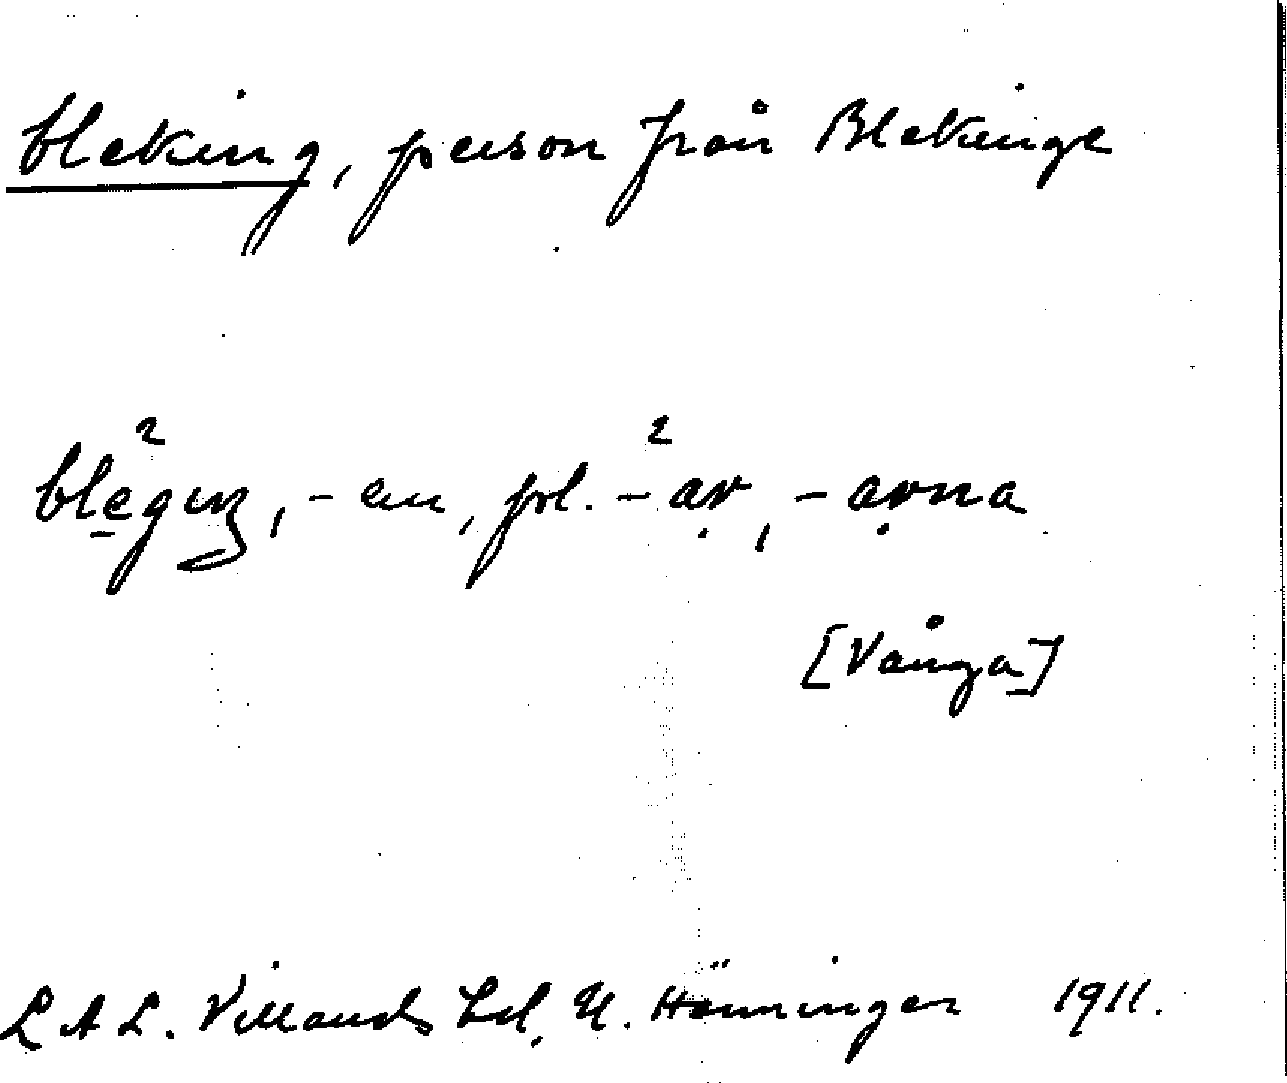 bleking, person från Blekinge
blẹ̄²giŋ, -en, pl. -²ạr, -ạrna
[Vånga]
L A L. Villands hd. N. Hänninger 1911.